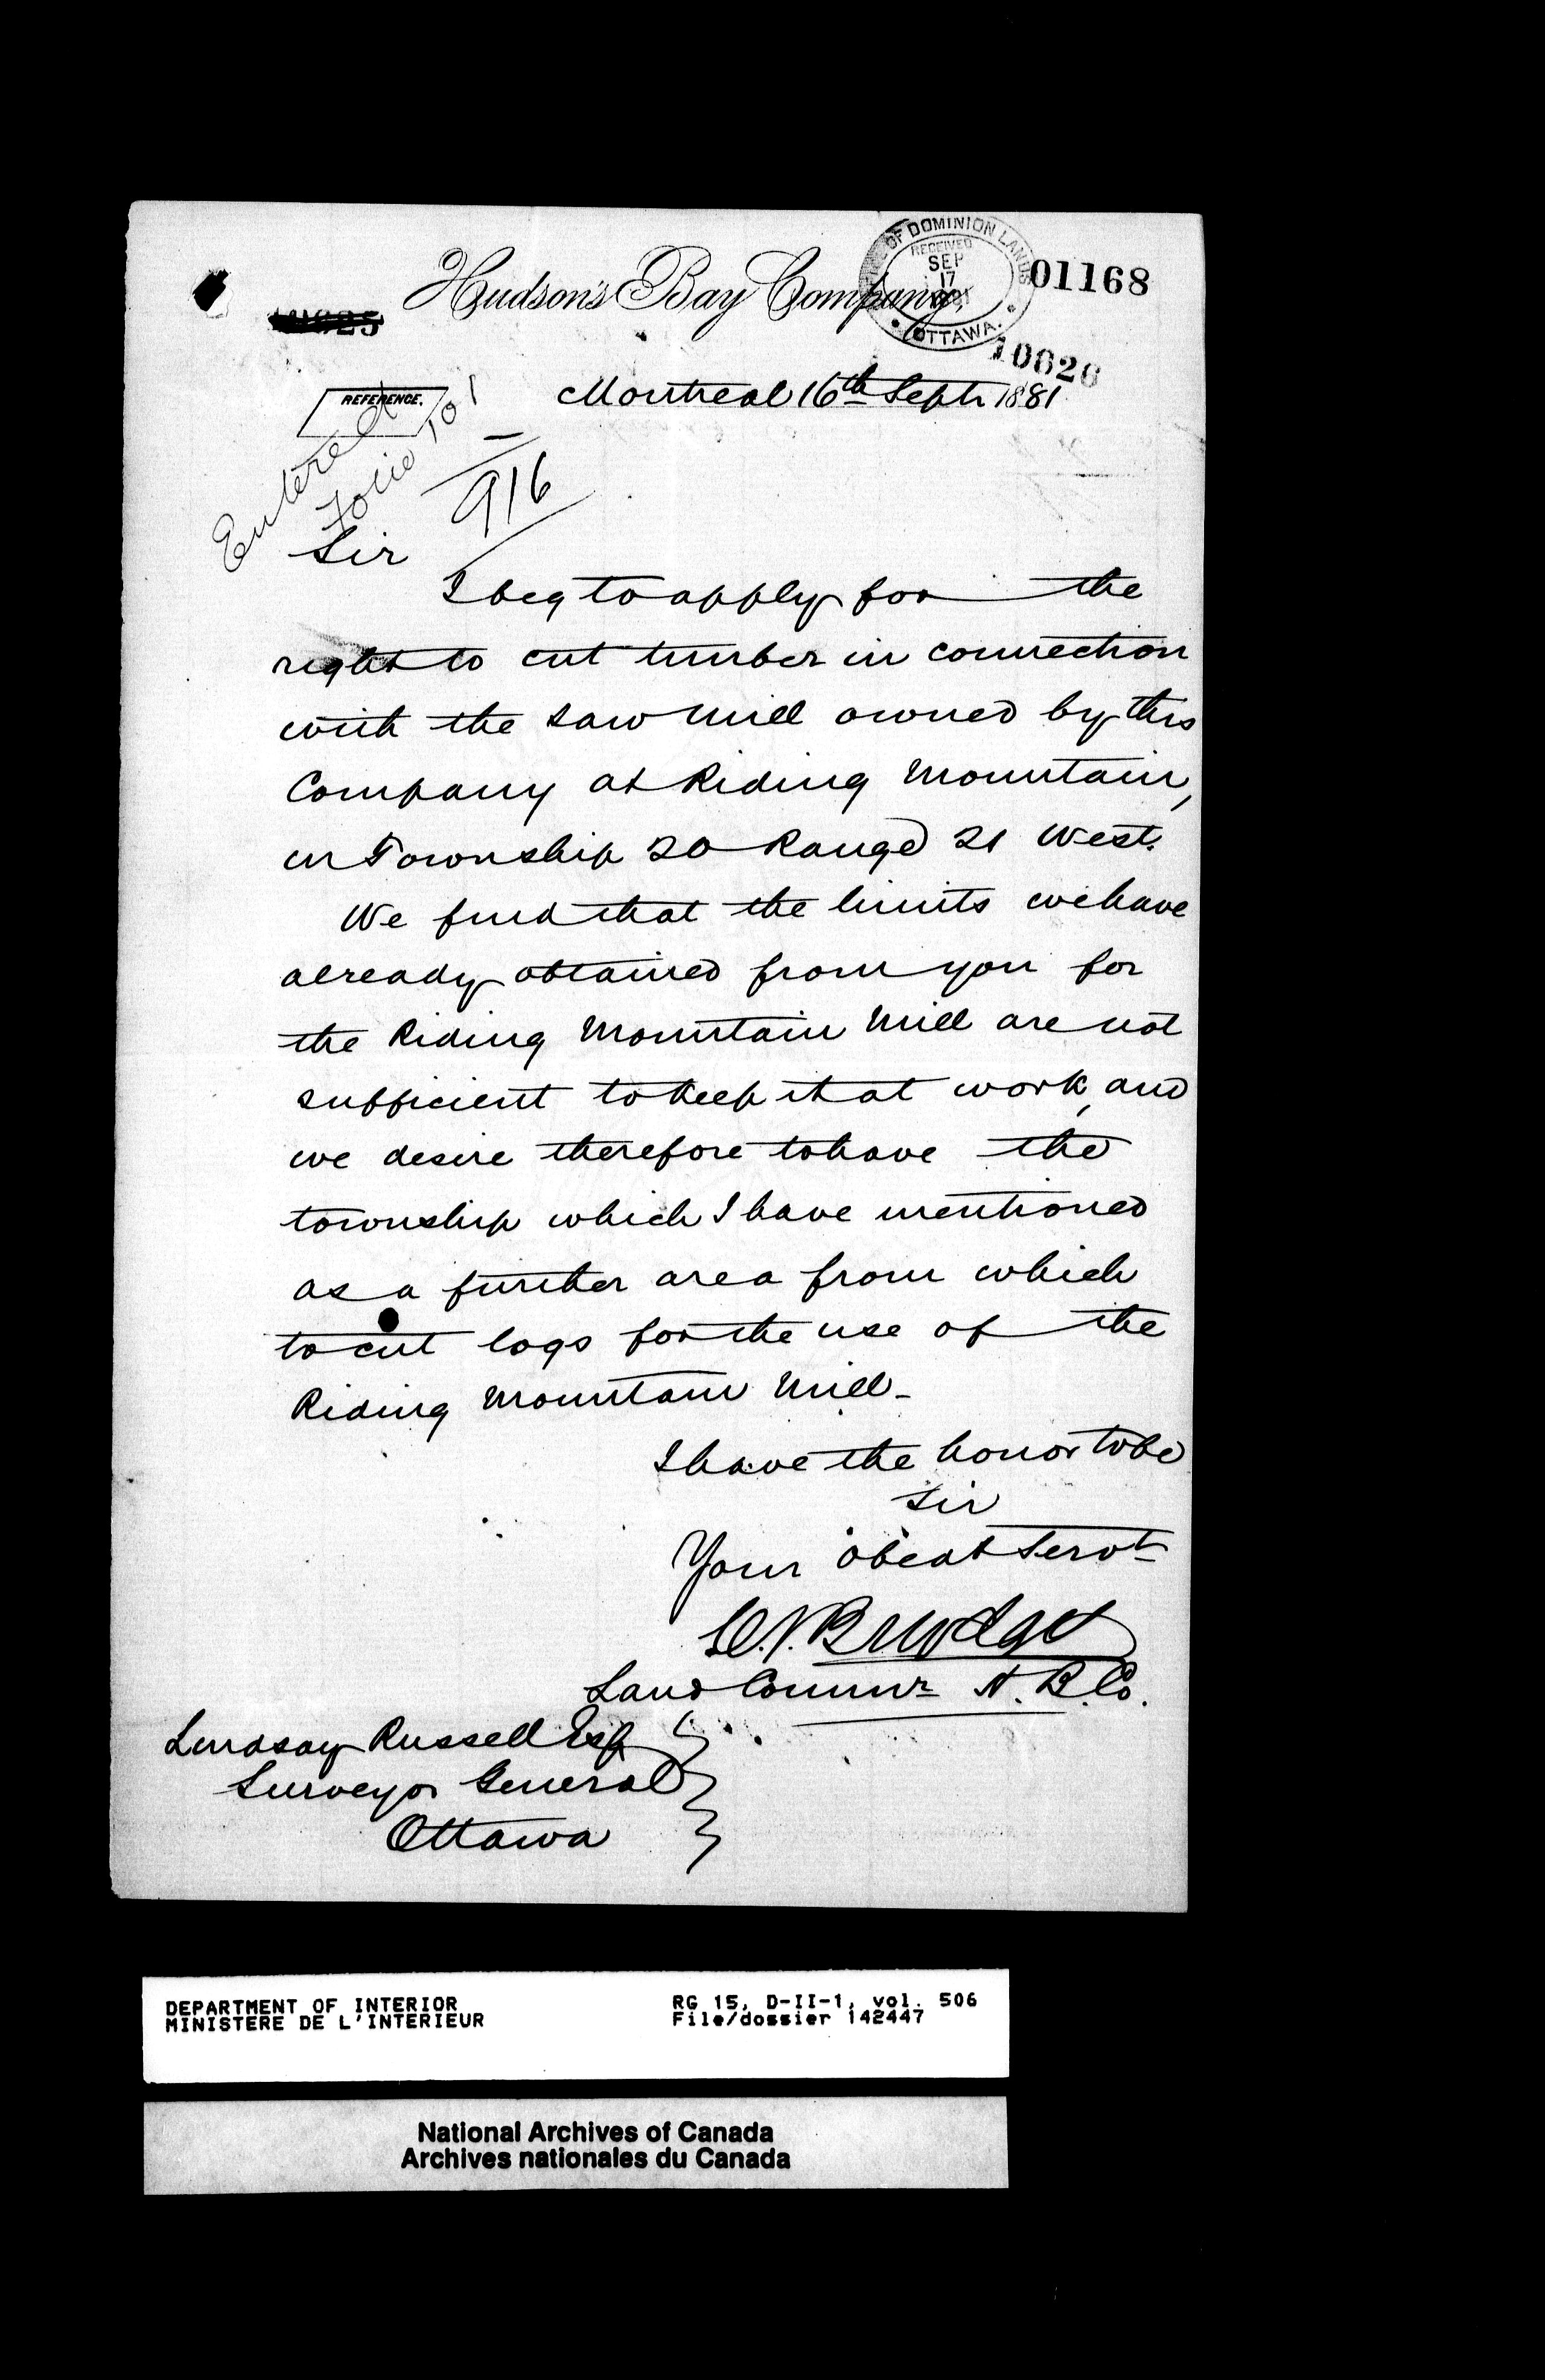 Hudson's Bay Company,
OF DOMINION LANDS
RECEIVED
SEP
17
OTTAWA.
01168
10626
REFERENCE.
Montreal 16th Septr 1881
Entered
Folio 101
916
Sir
I beg to apply for the
right to cut timber in connection
with the saw mill owned by this
Company at Riding Mountain,
in Township 20 Range 21 West.
We find that the limits we have
already obtained from you for
the Riding Mountain Mill are not
sufficient to keep it at work, and
we desire therefore to have the
township which I have mentioned
as a further area from which
to cut logs for the use of the
Riding Mountain Mill-
I have the honor to be
Sir
Your obedt Servt
C.J. Brydges
Land Commr H.B.Co.
Lindsay Russell Esq
Surveyor General
Ottawa
DEPARTMENT OF INTERIOR
MINISTERE DE L'INTERIEUR
RG 15, D-II-1, vol. 506
File/dossier 142447
National Archives of Canada
Archives nationales du Canada